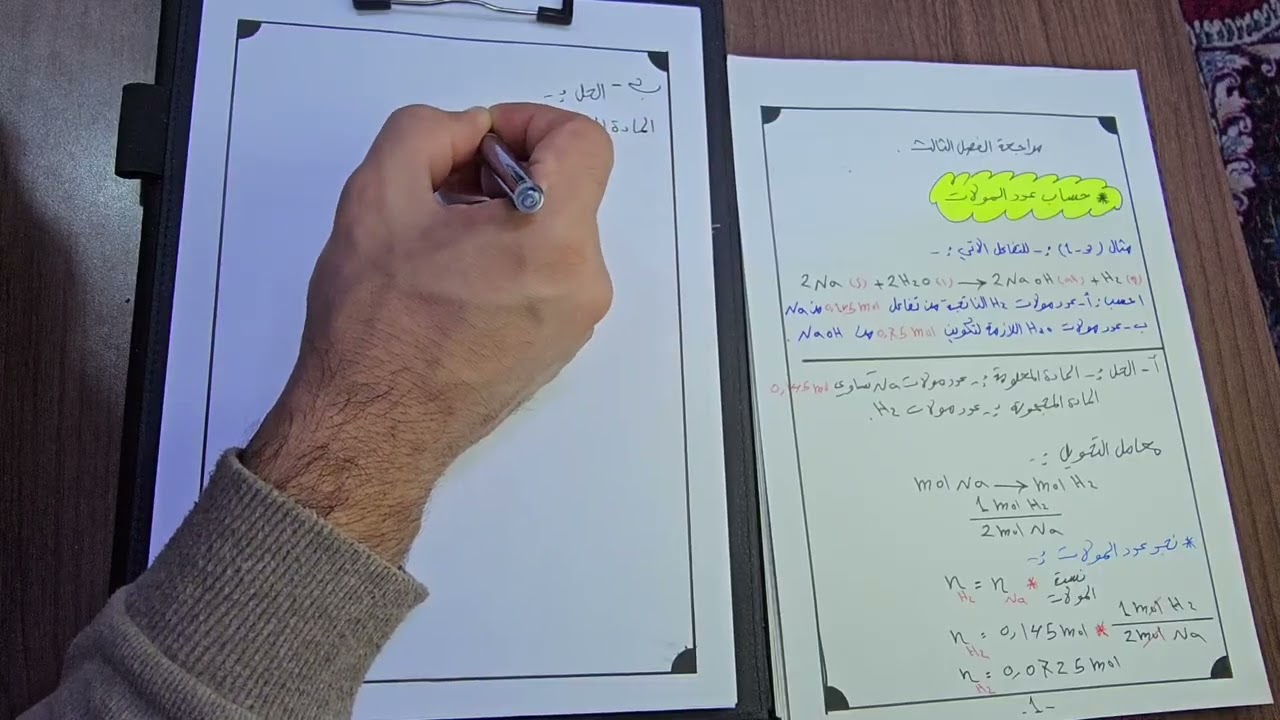 ب - الحل :-
المادة
مراجعة الفصل الثالث .
* حساب عدد المولات
مثال (3-1) :- للتفاعل الآتي :-
2Na(s) + 2H2O(l) → 2NaOH(aq) + H2(g)
احسب : أ- عدد مولات H2 الناتجة من تفاعل 0,145 mol من Na
ب- عدد مولات H2O اللازمة لتكوين 0,75 mol من NaOH .
أ - الحل :- المادة المعلومة :- عدد مولات Na تساوي 0,145 mol
المادة المجهولة :- عدد مولات H2.
معامل التحويل :-
mol Na → mol H2
1 mol H2
2 mol Na
* نجد عدد المولات :-
n H2 = n Na * نسبة المولات
n H2 = 0,145 mol * 1 mol H2 / 2 mol Na
n H2 = 0,0725 mol
-1-